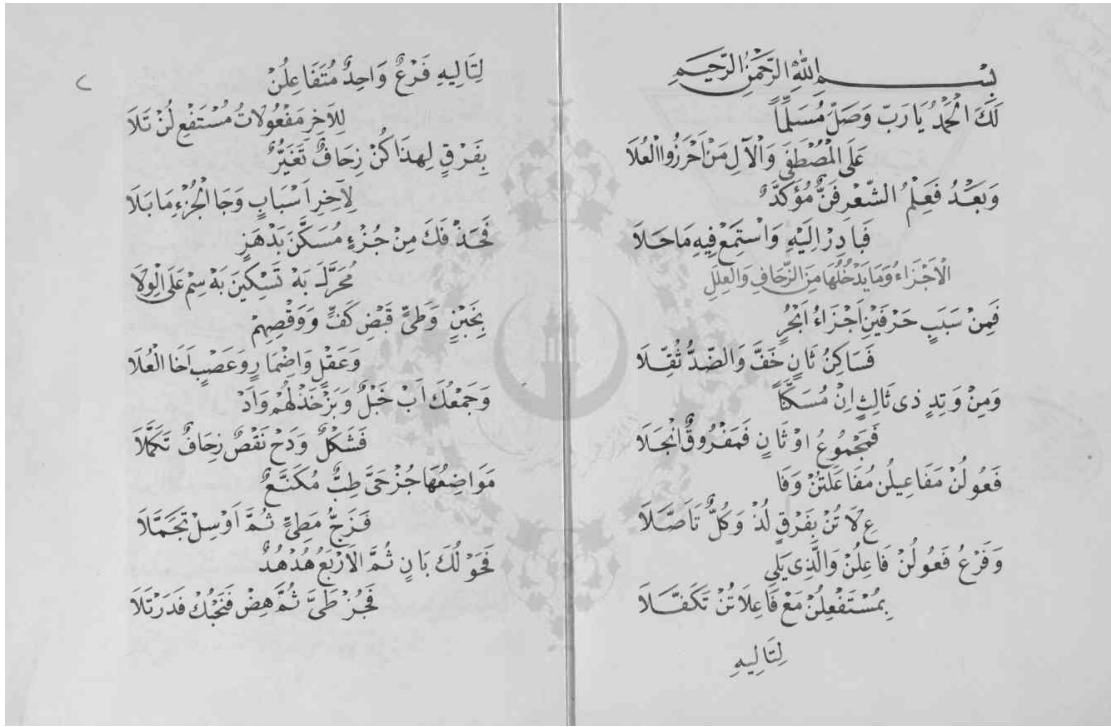 بِسْمِ اللّٰهِ الرَّحْمٰنِ الرَّحِيمِ
لَكَ الْحَمْدُ يَا رَبِّ وَصَلِّ مُسَلِّمًا
عَلَى الْمُصْطَفَى وَالْآلِ مَنْ اَحْرَزُوا الْعُلَا
وَبَعْدُ فَعِلْمُ الشِّعْرِ فَنٌّ مُؤَكَّدٌ
فَبَادِرْ اِلَيْهِ وَاسْتَمِعْ فِيهِ مَا حَلَا
الْاَجْزَاءُ وَمَا يَدْخُلُهَا مِنَ الزِّحَافِ وَالْعِلَلِ
فَمِنْ سَبَبٍ حَرْفَيْنِ اَجْزَاءُ اَبْحُرٍ
فَسَاكِنُ ثَانٍ خَفَّ وَالضِّدُّ ثُقِّلَا
وَمِنْ وَتِدٍ ذِى ثَالِثٍ اِنْ مُسَكَّنًا
فَمَجْمُوعُ اَوْ ثَانٍ فَمَفْرُوقٌ انْجَلَا
فَعُولُنْ مَفَاعِيلُنْ مُفَاعَلَتُنْ وَفَا
عِ لَا تُنْ بِفَرْقٍ لُذْ وَكُلٌّ تَاَصَّلَا
وَفَرْعُ فَعُولُنْ فَاعِلُنْ وَالَّذِى يَلِى
بِمُسْتَفْعِلُنْ مَعْ فَاعِلَاتُنْ تَكَفَّلَا
لِتَالِيهِ
٢
لِتَالِيهِ فَرْعٌ وَاحِدٌ مُتَفَاعِلُنْ
لِلْآخِرِ مَفْعُولَاتُ مُسْتَفْعِ لُنْ تَلَا
بِفَرْقٍ لِهٰذَا كُنْ زِحَافٌ تَغَيُّرٌ
لِآخِرِ اَسْبَابٍ وَجَا الْجُزْءِ مَا بَلَا
فَحَذْفُكَ مِنْ جُزْءٍ مُسَكَّنَ بَدْهَزٍ
مُحَرَّكَ بَهْ تَسْكِينَ بَهْ سِمْ عَلَى الْوِلَا
بِخَبْنٍ وَطَىٍّ قَبْضِ كَفٍّ وَوَقْصِهِمْ
وَعَقْلٍ وَاضْمَارٍ وَعَصْبٍ اَخَا الْعُلَا
وَجَمْعُكَ اَبْ خَبْلٌ وَبَزْ خَذْ لَهُمْ وَاَدْ
فَشَكْلٌ وَدَحْ نَقْصٌ زِحَافٌ تَكَمَّلَا
مَوَاضِعُهَا جُزْ حَىَّ طِبٌّ مُكَنَّعٌ
فَزَجٌّ مَطِىٍّ ثُمَّ اَوْسِلْ تَجَمَّلَا
فَحَوْ لُكَ بَانٍ ثُمَّ الْاَرْبَعُ هُدْهُدٌ
فَجُزْ طَىَّ ثُمَّ هِضْ فَنَجْبُكَ قَدْ رَتَلَا